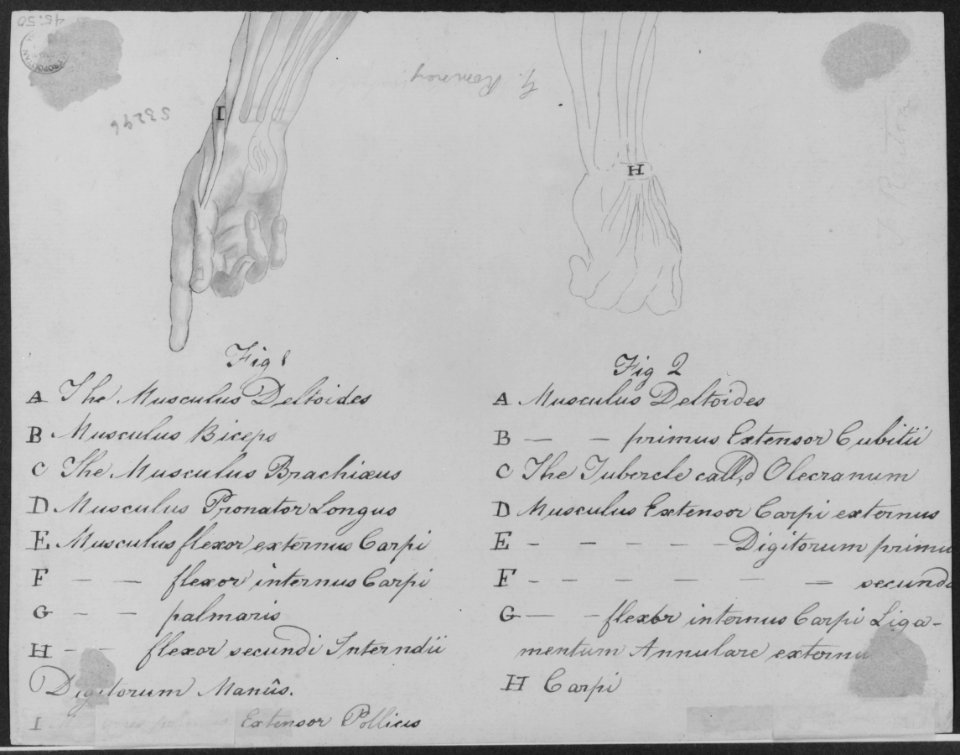 45.50
53296
G. Romney
I
H
Fig 1
A The Musculus Deltoides
B Musculus Biceps
C The Musculus Brachiæus
D Musculus Pronator Longus
E Musculus flexor externus Carpi
F — — flexor internus Carpi
G — — palmaris
H — — flexor secundi Interndii
Digitorum Manûs.
I Extensor Pollicis
Fig 2
A Musculus Deltoides
B — — primus Extensor Cubitii
C The Tubercle call,d Olecranum
D Musculus Extensor Carpi externus
E - - - - - Digitorum primu
F - - - - - - secund
G — — flexor internus Carpi Liga-
mentum Annulare externu
H Carpi